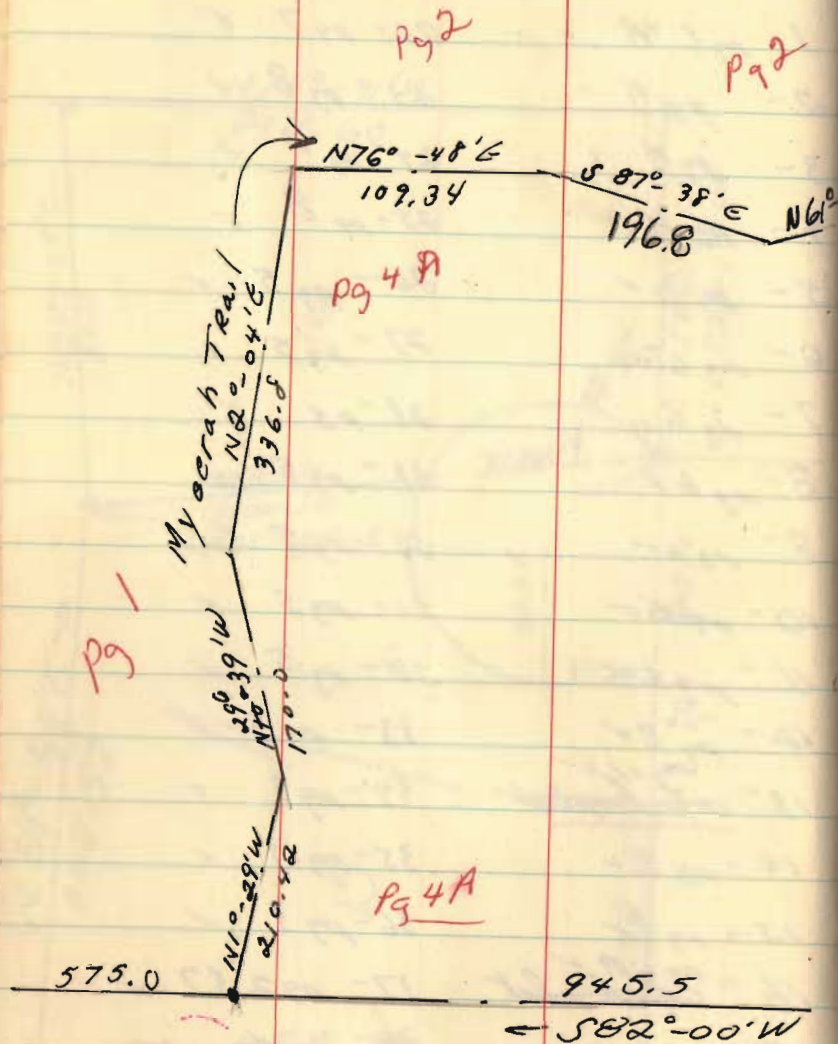 Pg 2
Pg 2
N76° -48' E
109.34
S 87° - 38' E
196.8
N61°-
Pg 4 A
My ocrah Trail
N2° -04' E
336.8
Pg 1
29° -39' W
170.0
N1° -29' W
210.42
Pg 4A
575.0
945.5
← S82° -00' W